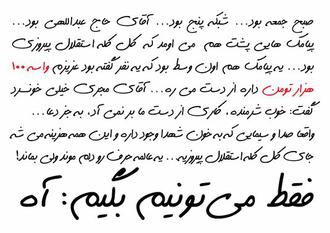 صبح جمعه بود... شبکه پنج بود... آقای حاج عبداللهی بود...
پیامک هایی پشت هم می اومد که کل کله استقلال پیروزی
بود... یه پیامک هم اون وسط بود که یه نفر گفته بود عزیزم واسه ۱۰۰
هزار تومن داره از دست می ره... آقای مجری خیلی خونسرد
گفت: خوب شرمنده. کاری از دست ما بر نمی آد. به جز دعا...
واقعا صدا و سیمایی که به خون شهدا وجود داره و این همه هزینه می شه
جای کل کله استقلال پیروزیه... یه عالمه حرف رو دلم موند ولی بماند!
فقط می تونیم بگیم: آه